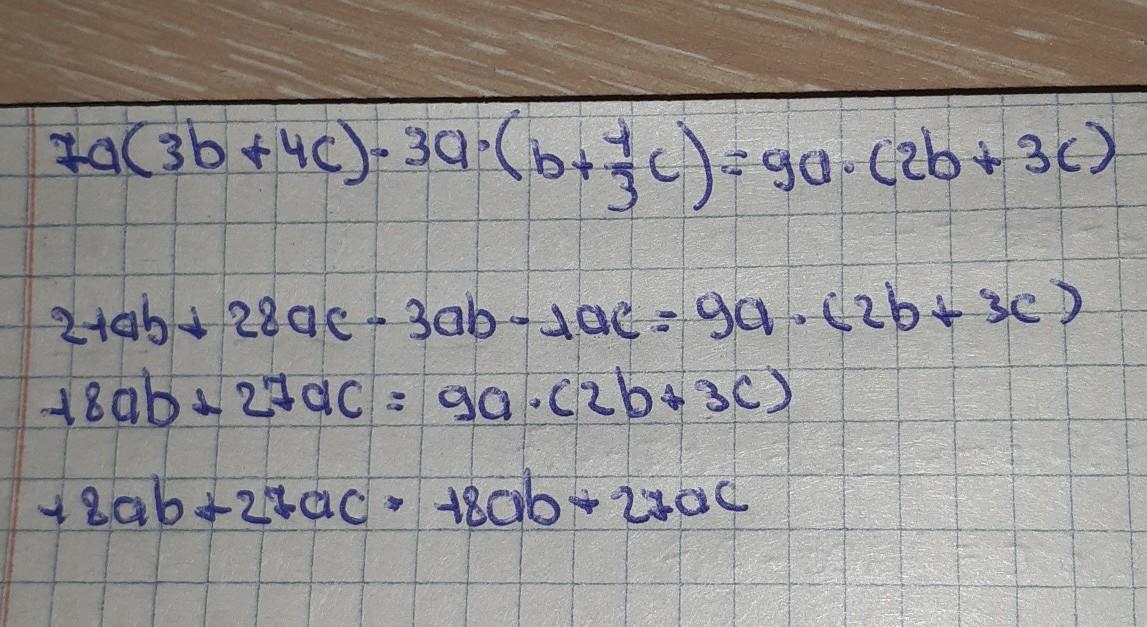 7a(3b+4c)-3a·(b+1/3c)=9a·(2b+3c)
21ab+28ac-3ab-1ac=9a·(2b+3c)
18ab+27ac=9a·(2b+3c)
18ab+27ac=18ab+27ac